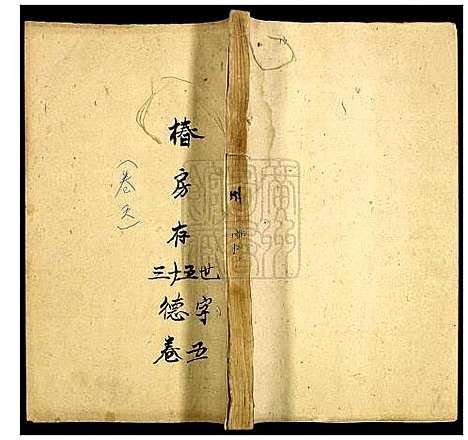 椿房存
三十五世
德字
卷五
(卷五)
五